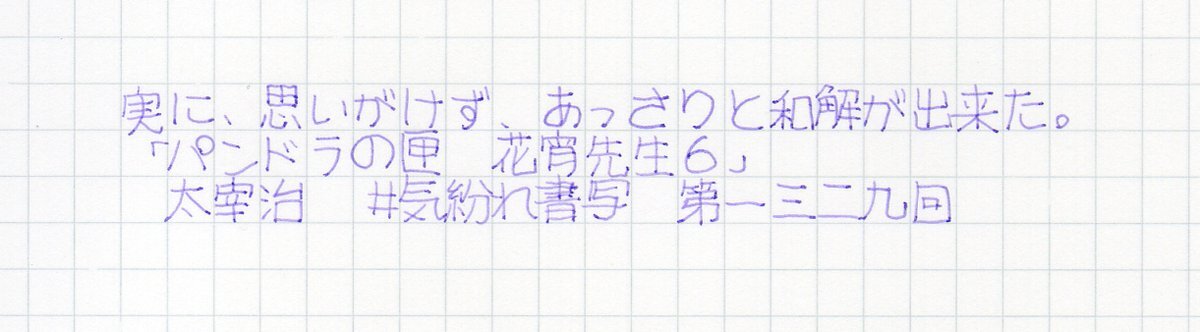 実に、思いがけず、あっさりと和解が出来た。
「パンドラの匣　花宵先生6」
太宰治　#気紛れ書写　第一三二九回